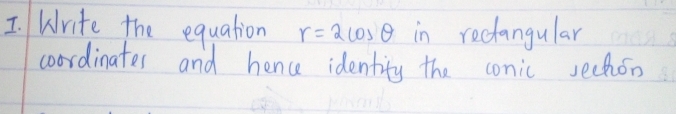 I. Write the equation r = 2cosθ in rectangular
coordinates and hence identity the conic section